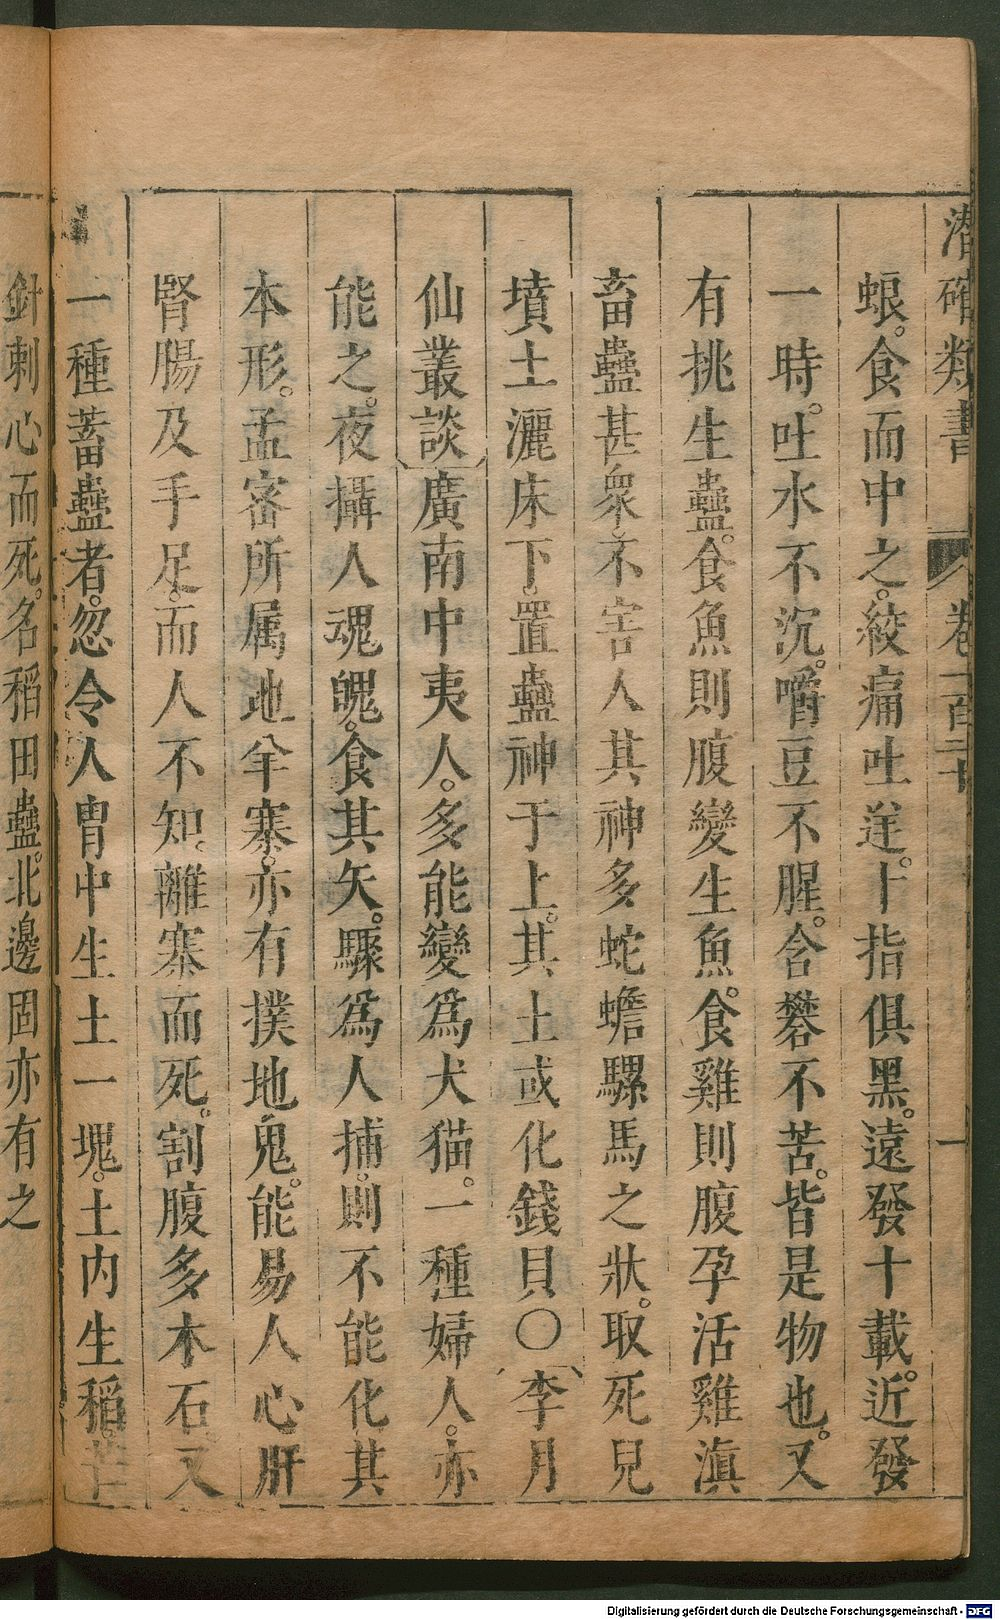 潛確類書 卷一百二十 一
蛝。食而中之。絞痛吐逆。十指俱黑。遠發十載。近發
一時。吐水不沉。嚼豆不腥。含礬不苦。皆是物也。又
有挑生蠱。食魚則腹變生魚。食雞則腹孕活雞滇
畜蠱甚衆。不害人其神多蛇蟾騾馬之狀。取死兒
墳土灑床下。置蠱神于上。其土或化錢貝〇李月
仙叢談廣南中夷人。多能變爲犬猫。一種婦人。亦
能之。夜攝人魂魄。食其矢。驟爲人捕。則不能化其
本形。孟密所属地羊寨。亦有撲地鬼。能易人心肝
腎腸及手足。而人不知。離寨而死。割腹多木石又
一種蓄蠱者。忽令人胃中生土一塊。土内生稻。芒
針刺心而死。名稻田蠱。北邊固亦有之
Digitalisierung gefördert durch die Deutsche Forschungsgemeinschaft - DFG